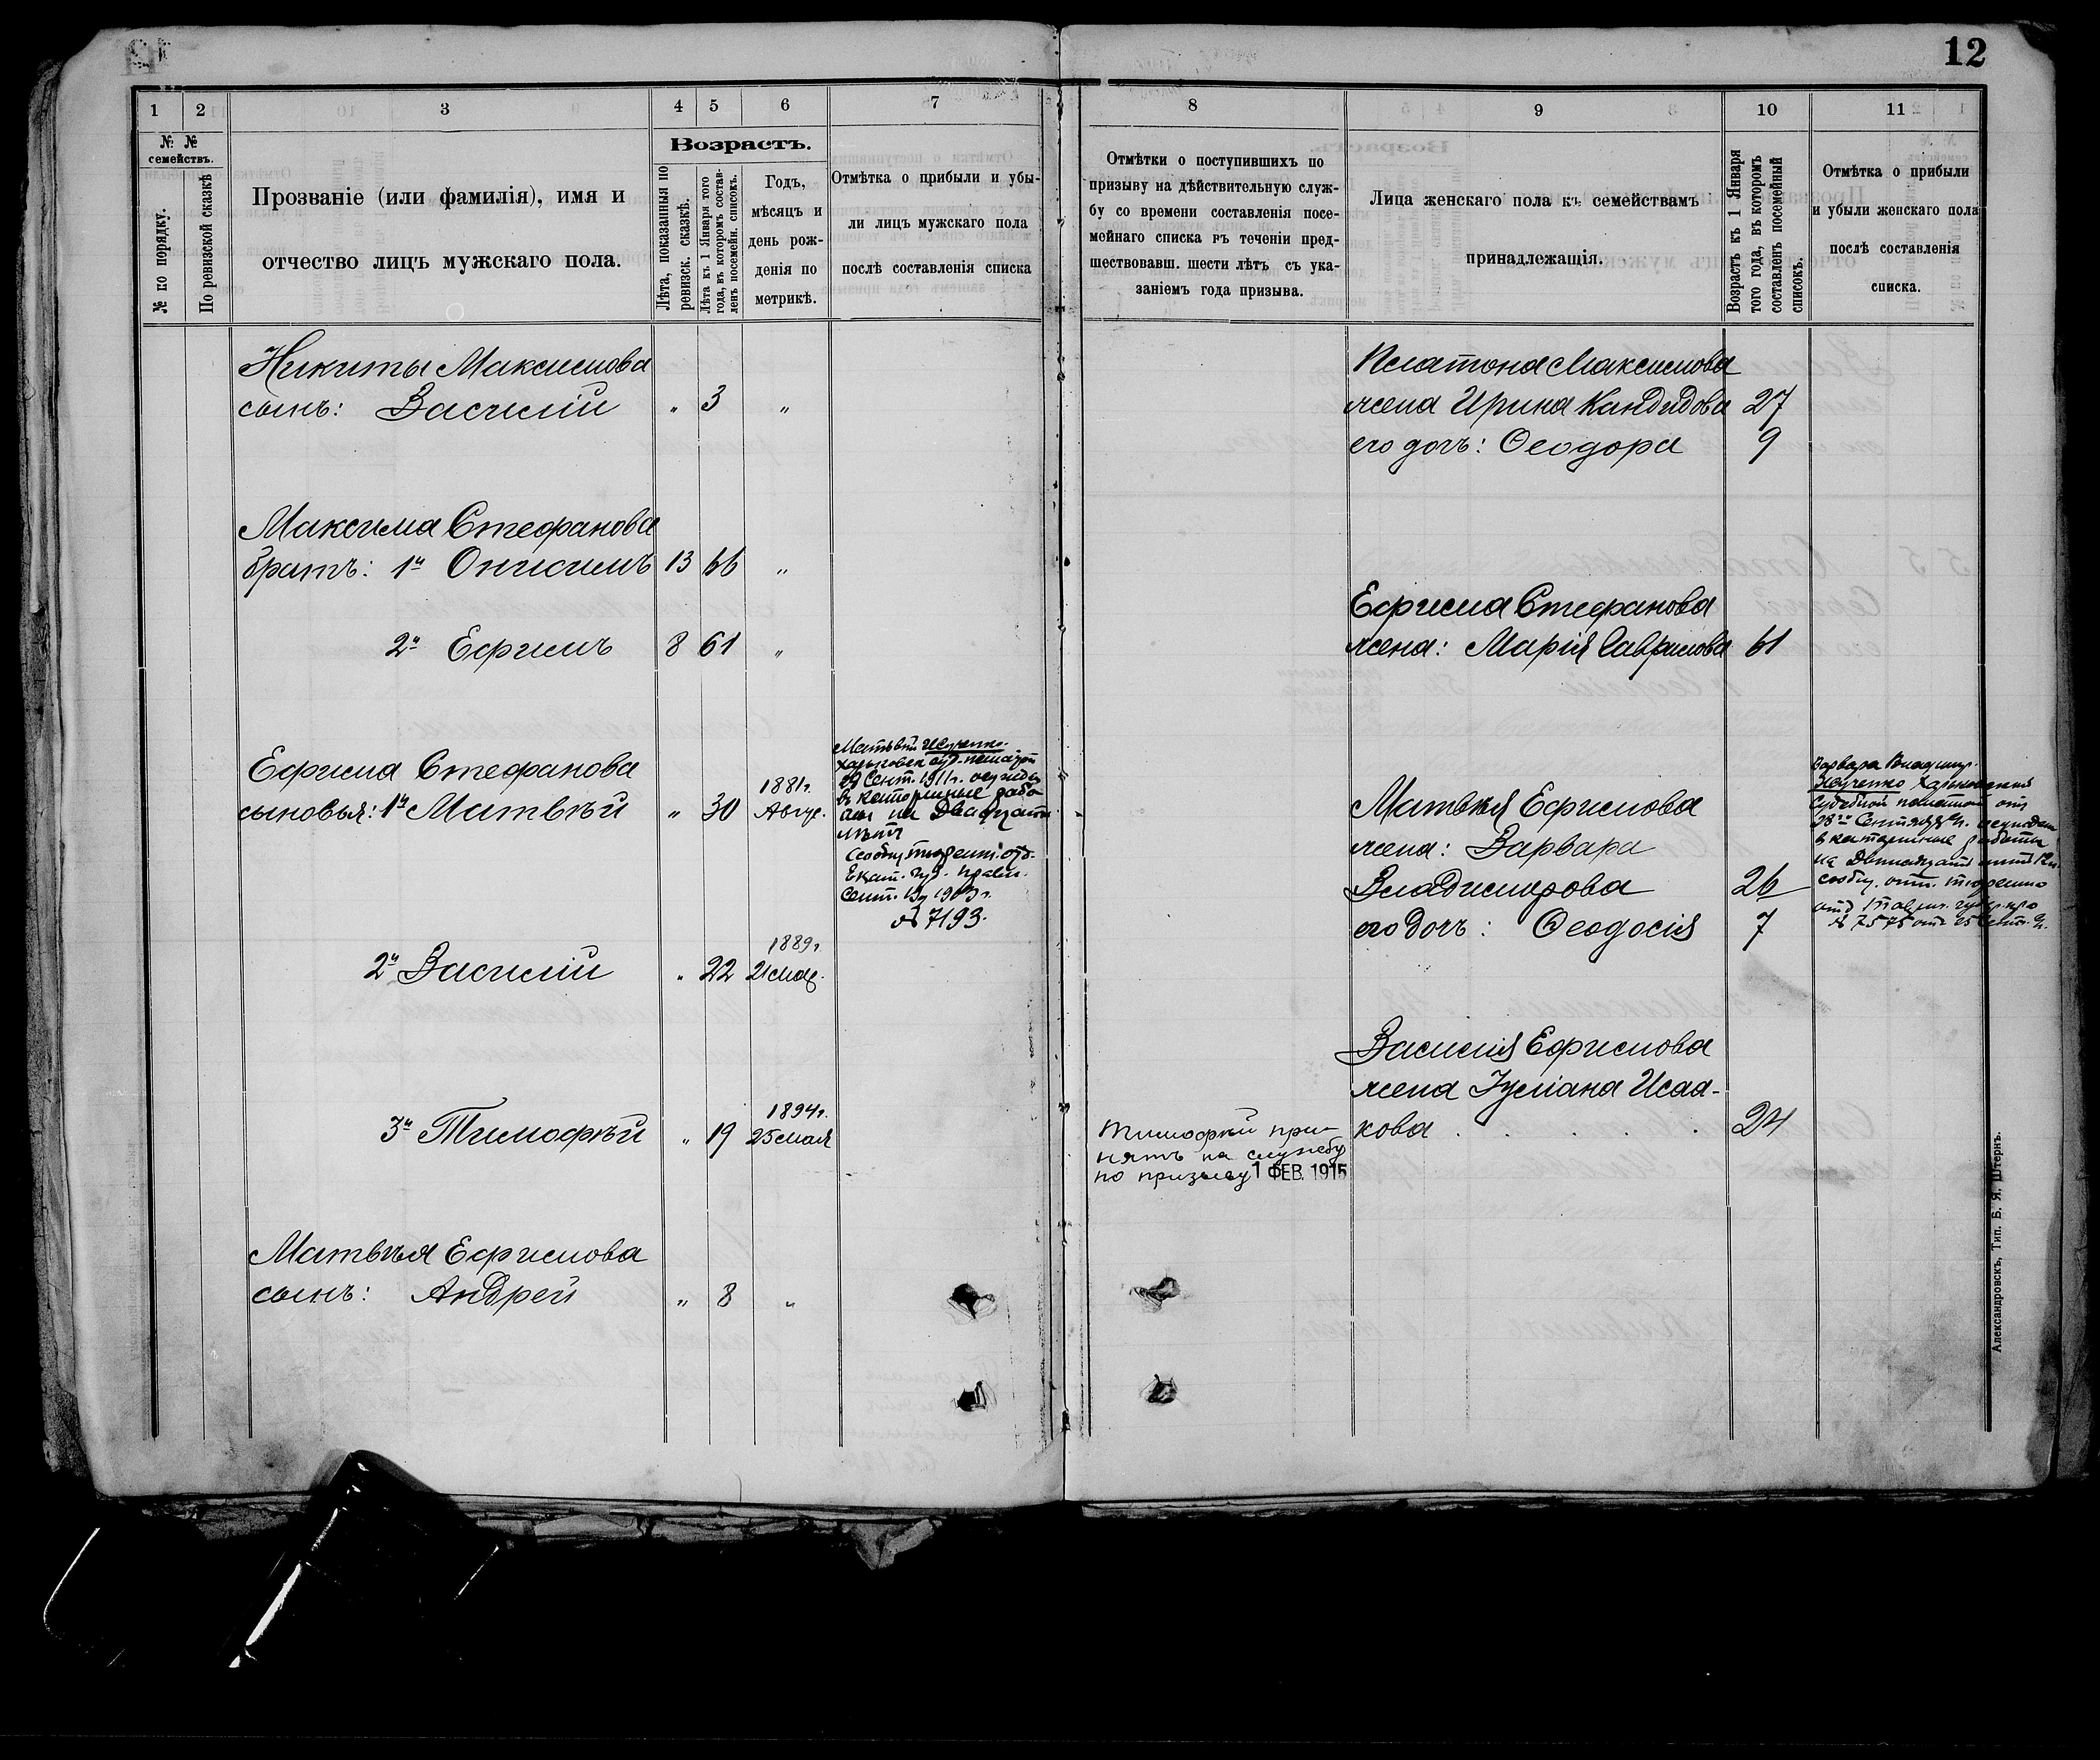 12
1
2
3
4
5
6
7
№ №
семействъ.
№ по порядку.
По ревизской сказкѣ
Прозваніе (или фамилія), имя и
отчество лицъ мужскаго пола.
Возрастъ.
Лѣта, показанныя по
ревизск. сказкѣ.
Лѣта къ 1 Января того
года, въ которомъ состав-
ленъ посемейн. списокъ.
Годъ,
мѣсяцъ и
день рож-
денія по
метрикѣ.
Отмѣтка о прибыли и убы-
ли лицъ мужскаго пола
послѣ составленія списка
Никиты Максимова
сынъ: Василій " 3 "
Максима Стефанова
братъ: 1й Онисимъ 13 66 "
2й Ефимъ 8 61 "
Ефима Стефанова
сыновья: 1й Матвѣй " 30 1881г. Авгус.
Матвѣй
Харьковск. суд. палатой
Сент. 1911г. осужд
въ каторжные рабо
на Двадцать
лѣтъ
Сообщ. тюремн. отд.
Екат. губ. правл.
Сент.
№ 7193.
2й Василій " 22 1889г. 21 мая.
3й Тимофѣй " 19 1894г. 25 мая
Матвѣя Ефимова
сынъ: Андрей " 8 "
8
9
10
11
Отмѣтки о поступившихъ по
призыву на дѣйствительную служ-
бу со времени составленія посе-
мейнаго списка въ теченіи пред-
шествовавш. шести лѣтъ съ ука-
заніемъ года призыва.
Лица женскаго пола къ семействамъ
принадлежащія.
Возрастъ къ 1 Января
того года, въ которомъ
составленъ посемейный
списокъ.
Отмѣтка о прибыли
и убыли женскаго пола
послѣ составленія
списка.
Платона Максимова
жена Ирина Кандидова 27
его дочь: Ѳеодора 9
Ефима Стефанова
жена: Марія Гаврилова 61
Матвѣя Ефимова
жена: Варвара
Владимирова 26
его дочь: Ѳеодосія 7
Варвара Владимир.
Харьковская
Судебной палатой отъ
28го Сентября осуждена
в каторжные работы
на Двенадцать лѣтъ
сообщ. отн. тюремно
отд.
№ 7575 отъ 25 Сент.
Василія Ефимова
жена Іуліана Исаа-
кова . . . . . 24
Тимофѣй при-
нятъ на службу
по призыву 1 ФЕВ. 1915
Александровскъ, Тип. Б. Я. Штернъ.